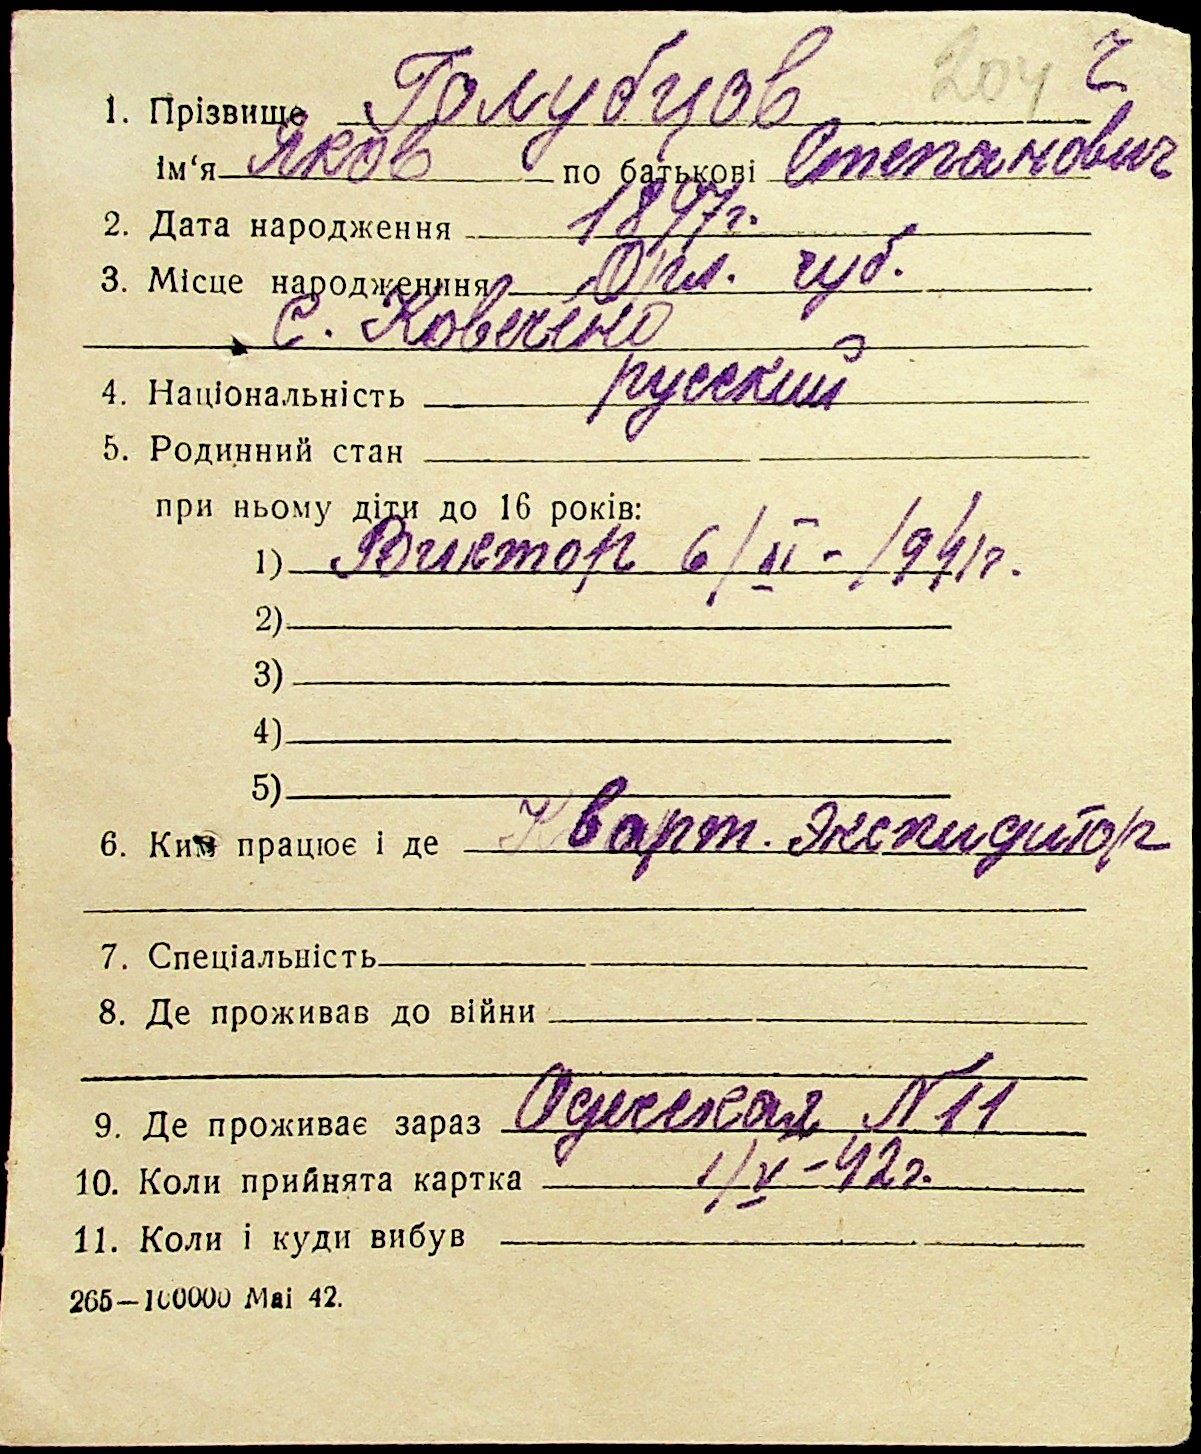 204 2
1. Прізвище Голубцов
ім'я Яков по батькові Степанович
2. Дата народження 1897г.
3. Місце народженння Орл. губ.
с.
4. Національність русский
5. Родинний стан
при ньому діти до 16 років:
1) Виктор 6/II-1941г.
2)
3)
4)
5)
6. Ким працює і де Кварт. Экспидитор
7. Спеціальність
8. Де проживав до війни
9. Де проживає зараз Одесская N11
10. Коли прийнята картка 1/V-42г.
11. Коли і куди вибув
265—100000 Маі 42.